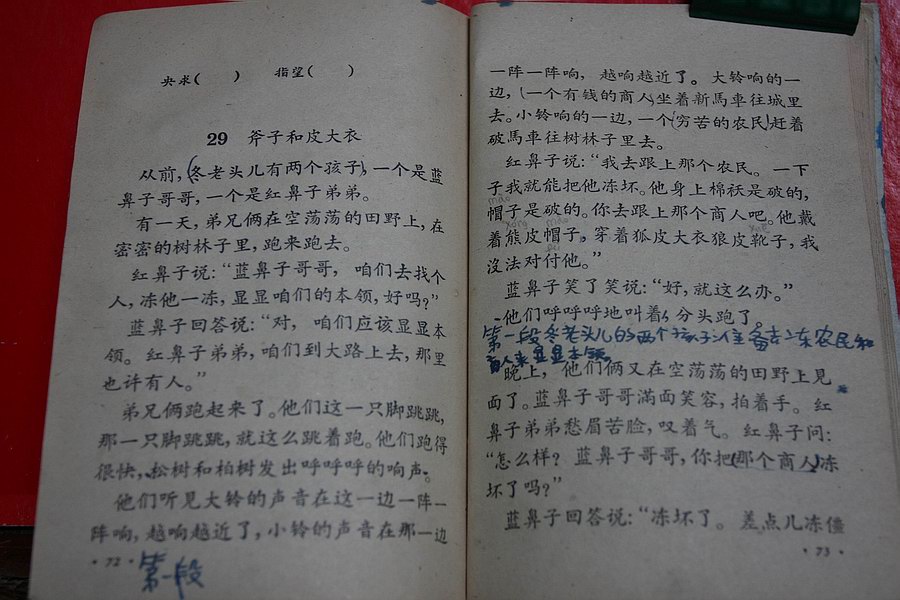 央求(　　)　　指望(　　)
29 斧子和皮大衣
从前,(冬老头儿有两个孩子),一个是蓝
鼻子哥哥,一个是红鼻子弟弟。
有一天,弟兄俩在空荡荡的田野上,在
密密的树林子里,跑来跑去。
红鼻子说:“蓝鼻子哥哥, 咱们去找个
人,冻他一冻,显显咱们的本领,好吗?”
蓝鼻子回答说:“对, 咱们应该显显本
领。红鼻子弟弟,咱们到大路上去,那里
也许有人。”
弟兄俩跑起来了。他们这一只脚跳跳,
那一只脚跳跳,就这么跳着跑。他们跑得
很快,松树和柏树发出呼呼呼的响声。
他们听見大铃的声音在这一边一阵一
阵响,越响越近了,小铃的声音在那一边
·72·
第一段
一阵一阵响, 越响越近了。大铃响的一
边,(一个有钱的商人)坐着新馬車往城里
去。小铃响的一边,一个(穷苦的农民)赶着
破馬車往树林子里去。
红鼻子说:“我去跟上那个农民。一下
子我就能把他冻坏。他身上棉袄是破的,
帽子是破的。你去跟上那个商人吧。他戴
着熊皮帽子,穿着狐皮大衣狼皮靴子,我
沒法对付他。”
蓝鼻子笑了笑说:“好,就这么办。”
他们呼呼呼地叫着,分头跑了。
第一段冬老头儿的两个孩子准备去冻农民和
商人来显显本领。
晚上, 他们俩又在空荡荡的田野上見
面了。蓝鼻子哥哥滿面笑容,拍着手。红
鼻子弟弟愁眉苦脸,叹着气。红鼻子问:
“怎么样? 蓝鼻子哥哥,你把(那个商人)冻
坏了吗?”
蓝鼻子回答说:“冻坏了。 差点儿冻僵
·73·